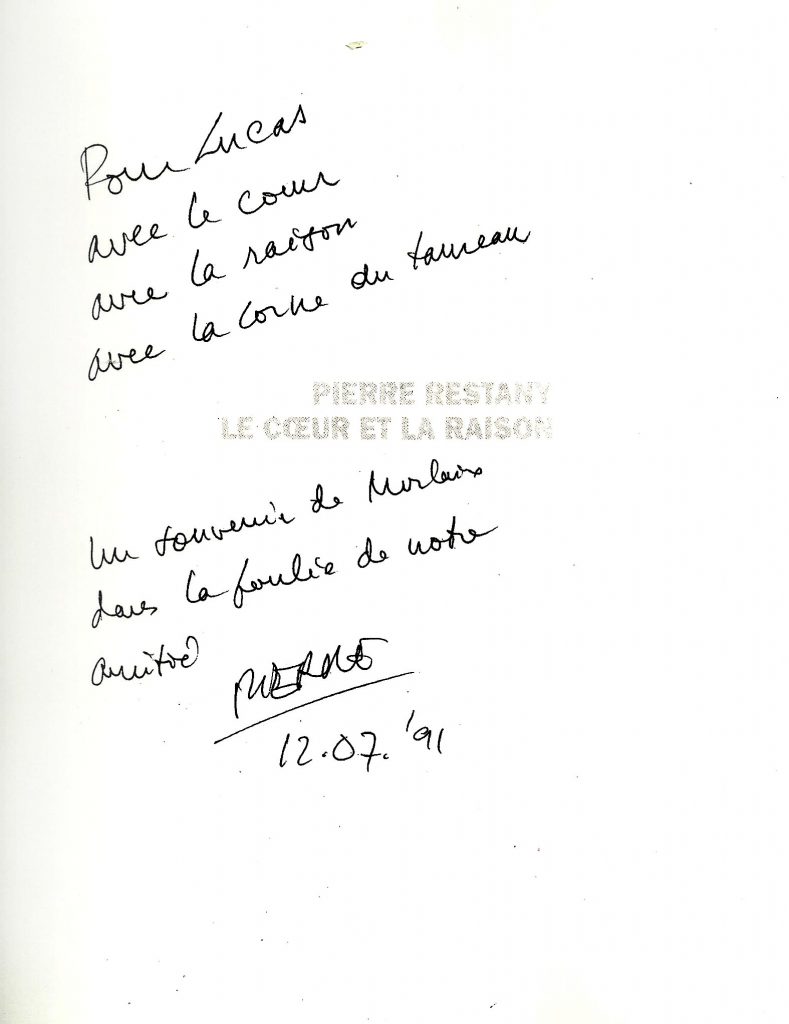 Pour Lucas
avec le cœur
avec la raison
avec la corne du taureau
PIERRE RESTANY
LE CŒUR ET LA RAISON
Un souvenir de Morlaix
dans la foulée de notre
amitié
PIERRE
12.07.'91